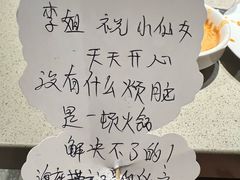 李姐 祝小仙女
天天开心
没有什么烦脑
是一顿火锅
解决不了的!